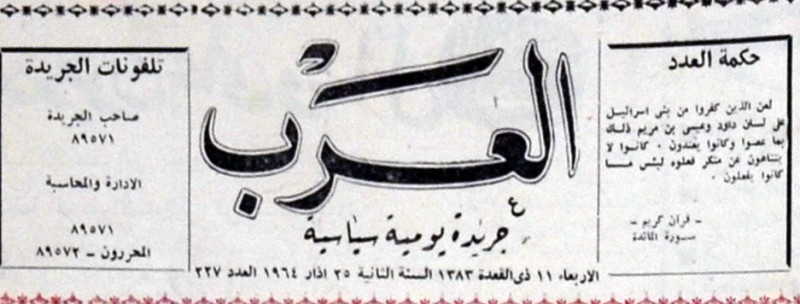 حكمة العدد
لعن الذين كفروا من بني اسرائيل
على لسان داود وعيسى بن مريم ذلك
بما عصوا وكانوا يعتدون . كانوا لا
يتناهون عن منكر فعلوه لبئس ما
كانوا يفعلون .
- قرآن كريم -
سورة المائدة
العرب
جريدة يومية سياسية
الاربعاء ١١ ذي القعدة ١٣٨٣ السنة الثانية ٢٥ اذار ١٩٦٤ العدد ٢٢٧
تلفونات الجريدة
صاحب الجريدة
٨٩٥٧١
الادارة والمحاسبة
٨٩٥٧١
المحررون - ٨٩٥٧٢